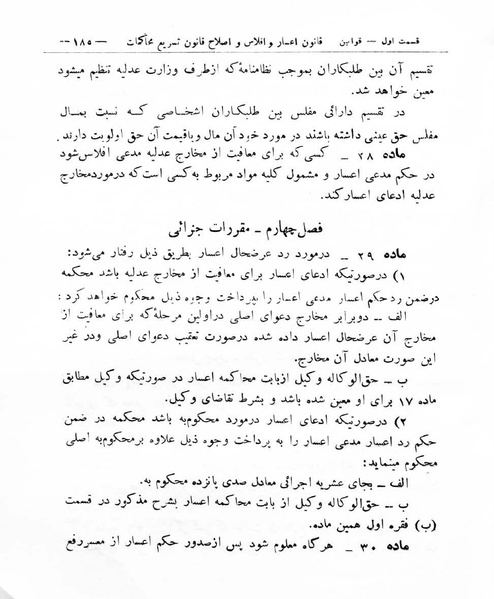 قسمت اول — قوانین قانون اعسار و افلاس و اصلاح قانون تسریع محاکمات —۱۸۵—
تقسیم آن بین طلبکاران بموجب نظامنامه‌که ازطرف وزارت عدلیه تنظیم میشود
معین خواهد شد.
در تقسیم دارائی مفلس بین طلبکاران اشخاصی که نسبت بمال
مفلس حق عینی داشته باشند در مورد خود آن مال وباقیمت آن حق اولویت دارند.
ماده ۲۸ — کسی‌که برای معافیت از مخارج عدلیه مدعی افلاس‌شود
در حکم مدعی اعسار و مشمول کلیه مواد مربوط به‌کسی است‌که درموردمخارج
عدلیه ادعای اعسارکند.
فصل چهارم — مقررات جزائی
ماده ۲۹ — درمورد رد عرضحال اعسار بطریق ذیل رفتار می‌شود:
۱) درصورتیکه ادعای اعسار برای معافیت از مخارج عدلیه باشد محکمه
درضمن رد حکم اعسار مدعی اعسار را بپرداخت وجوه ذیل محکوم خواهد کرد:
الف — دوبرابر مخارج دعوای اصلی دراولین مرحله‌که برای معافیت از
مخارج آن عرضحال اعسار داده شده درصورت تعقیب دعوای اصلی ودر غیر
این صورت معادل آن مخارج.
ب — حق‌الوکاله وکیل ازبابت محاکمه اعسار در صورتیکه وکیل مطابق
ماده ۱۷ برای او معین شده باشد و بشرط تقاضای وکیل.
۲) درصورتیکه ادعای اعسار درمورد محکوم‌به باشد محکمه در ضمن
حکم رد اعسار مدعی اعسار را به پرداخت وجوه ذیل علاوه برمحکوم‌به اصلی
محکوم مینماید:
الف — بجای عشریه اجرائی معادل صدی پانزده محکوم به.
ب — حق‌الوکاله وکیل از بابت محاکمه اعسار بشرح مذکور در قسمت
(ب) فقره اول همین ماده.
ماده ۳۰ — هرگاه معلوم شود پس ازصدور حکم اعسار از معسررفع